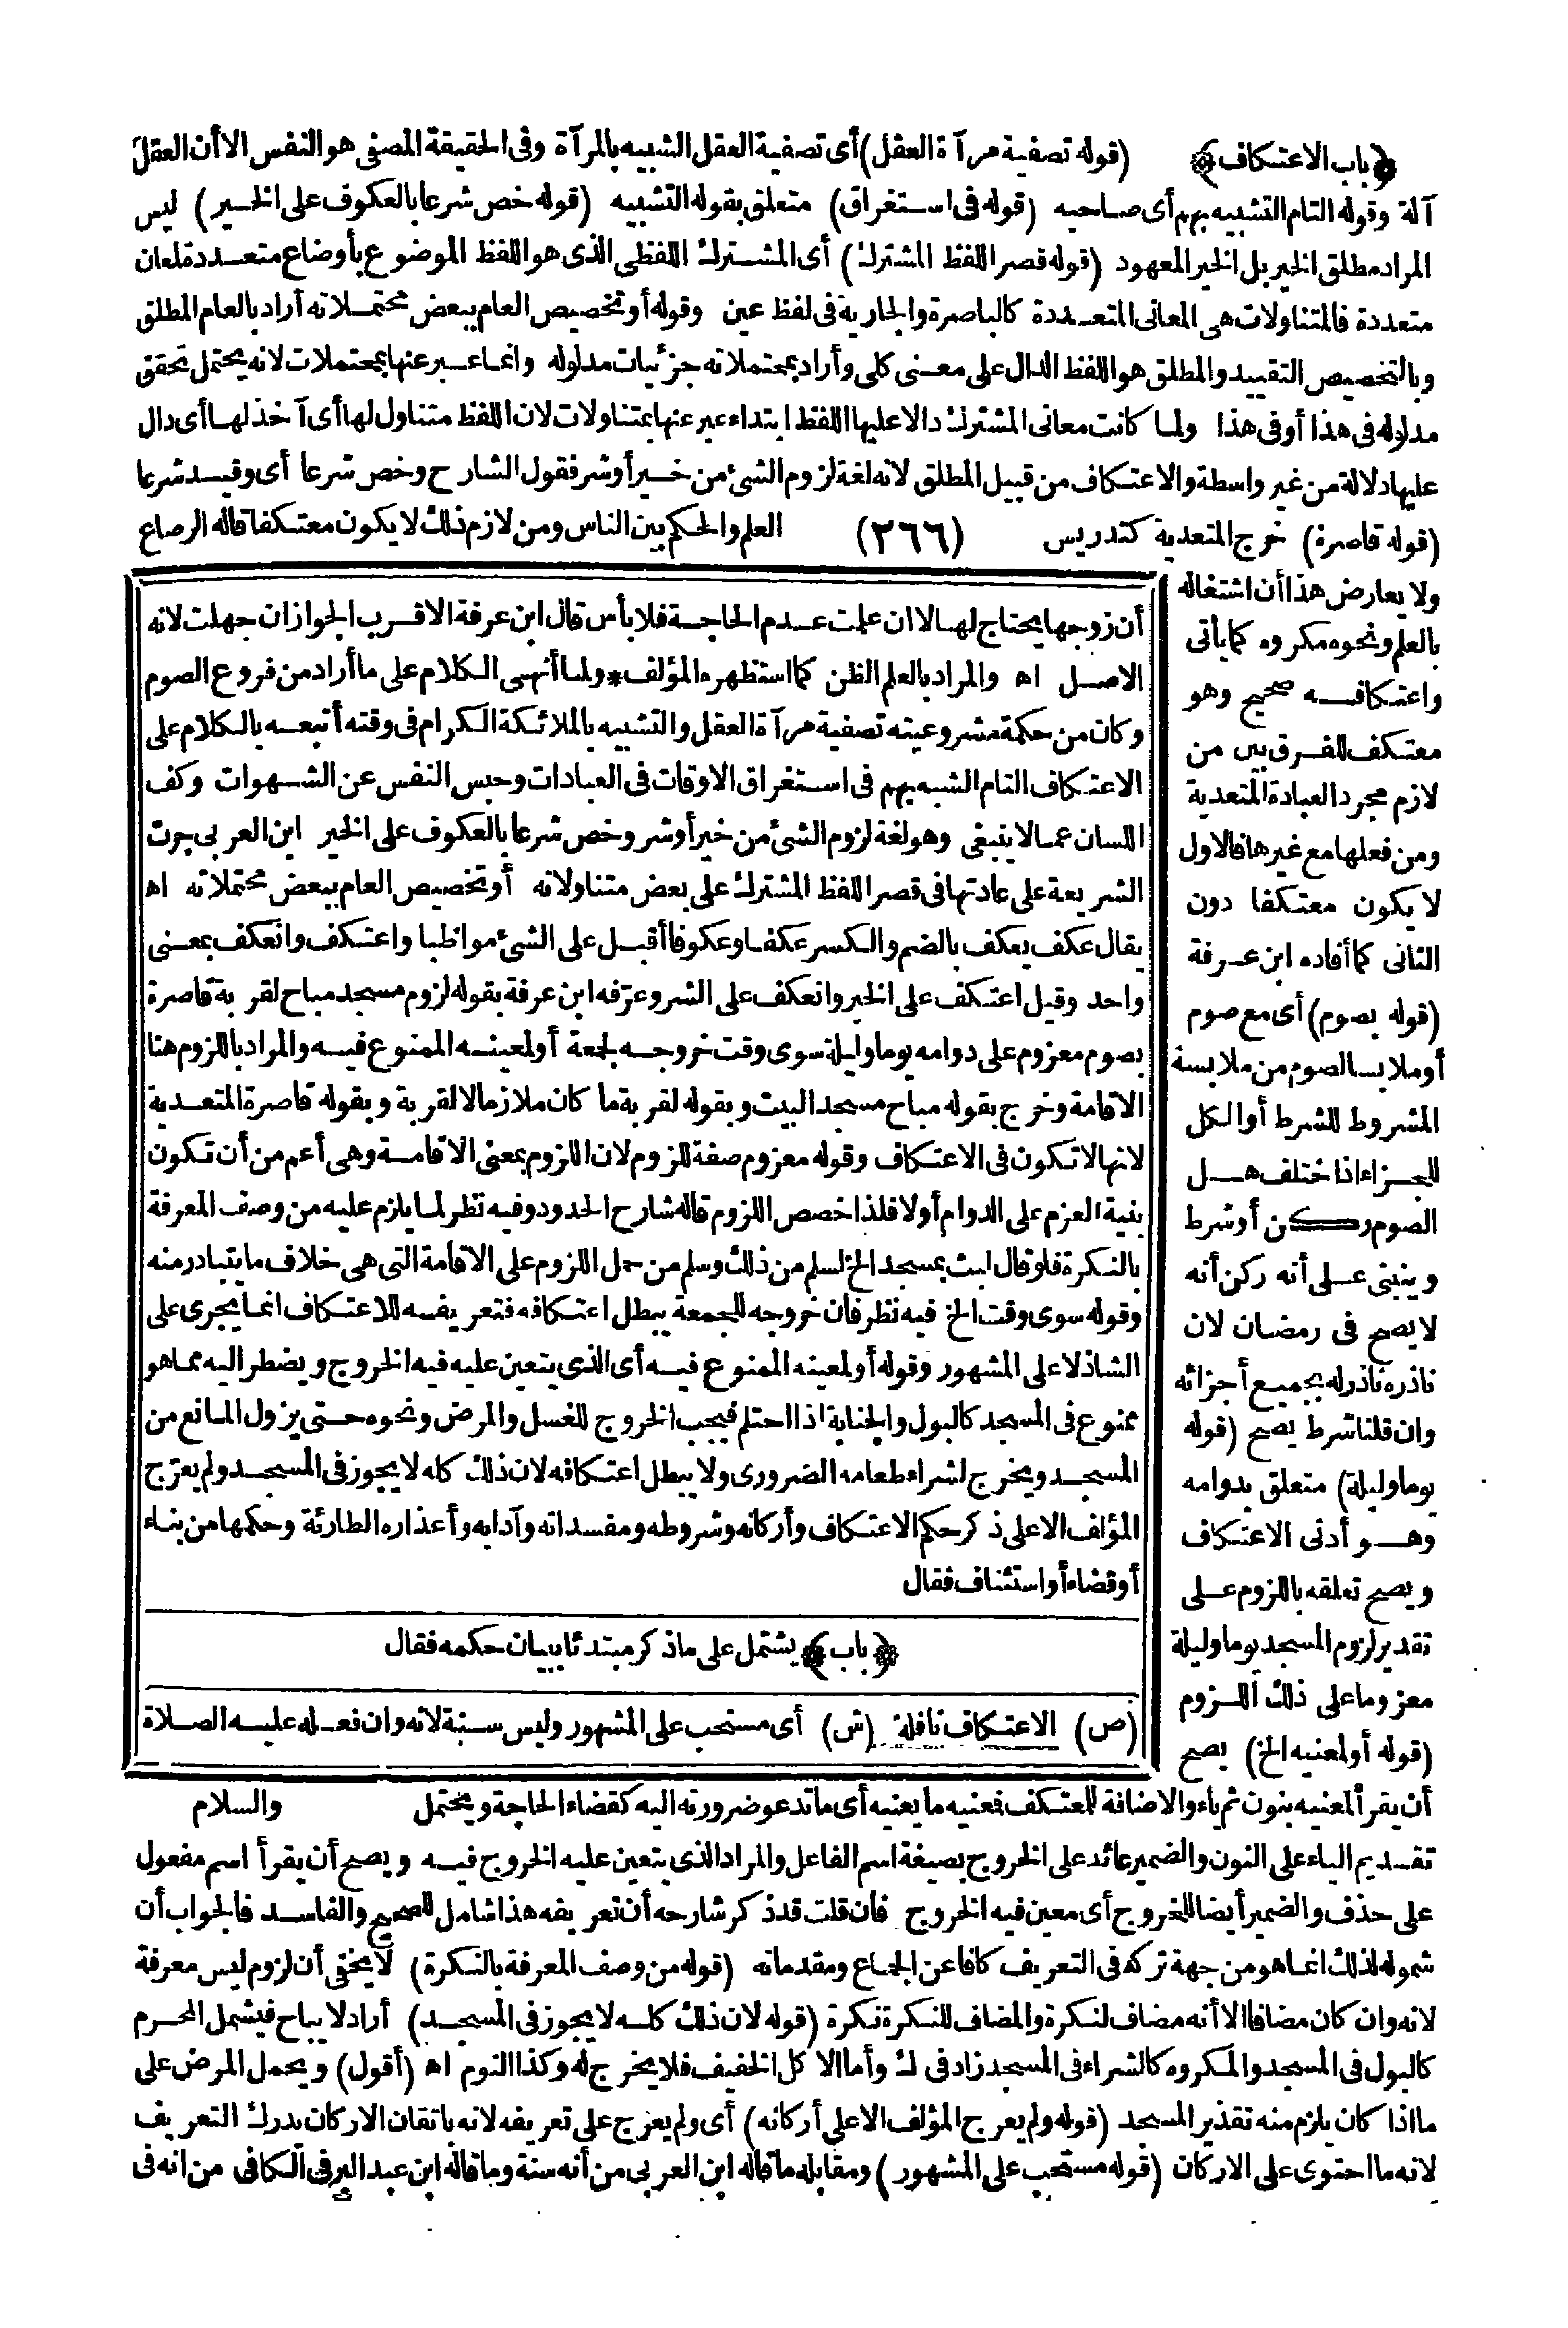 ﴿باب الاعتكاف﴾ (قوله تصفية مرآة العقل) أى تصفية العقل الشبيه بالمرآة وفى الحقيقة المصفى هو النفس الا أن العقل
آلة وقوله التام التشبيه بهم أى صاحبه (قوله فى استغراق) متعلق بقوله التشبيه (قوله خص شرعا بالعكوف على الخير) ليس
المراد مطلق الخير بل الخير المعهود (قوله قصر اللفظ المشترك) أى المشترك اللفظى الذى هو اللفظ الموضوع بأوضاع متعددة لمعان
متعددة فالمتناولات هى المعانى المتعددة كالباصرة والجارية فى لفظ عين وقوله أو تخصيص العام ببعض محتملاته أراد بالعام المطلق
وبالتخصيص التقييد والمطلق هو اللفظ الدال على معنى كلى وأراد بمحتملاته جزئيات مدلوله وانما عبر عنها بمحتملات لانه يحتمل تحقق
مدلوله فى هذا أو فى هذا ولما كانت معانى المشترك دالا عليها اللفظ ابتداء عبر عنها بمتناولات لان اللفظ متناول لها أى آخذ لها أى دال
عليها دلالة من غير واسطة والاعتكاف من قبيل المطلق لانه لغة لزوم الشئ من خير أو شر فقول الشارح وخص شرعا أى وقيد شرعا
(قوله قاصرة) خرج المتعدية كتدريس (٢٦٦) العلم والحكم بين الناس ومن لازم ذلك لا يكون معتكفا قاله الرصاع
ولا يعارض هذا أن اشتغاله
بالعلم ونحوه مكروه كما يأتى
واعتكافه صحيح وهو
معتكف للفرق بين من
لازم مجرد العبادة المتعدية
ومن فعلها مع غيرها فالاول
لا يكون معتكفا دون
الثانى كما أفاده ابن عرفة
(قوله بصوم) أى مع صوم
أو ملابسا لصوم من ملابسة
المشروط للشرط أو الكل
للجزء اذا ختلف هل
الصوم ركن أو شرط
وينبنى على أنه ركن أنه
لا يصح فى رمضان لان
ناذره ناذر له بجميع أجزائه
وان قلنا شرط يصح (قوله
يوما وليلة) متعلق بدوامه
وهو أدنى الاعتكاف
ويصح تعلقه باللزوم على
تقدير لزوم المسجد يوما وليلة
معزوما على ذلك اللزوم
(قوله أو لمعنيه الخ) يصح
أن زوجها يحتاج لها الا ان علمت عدم الحاجة فلا بأس قال ابن عرفة الاقرب الجواز ان جهلت لانه
الاصل اه والمراد بالعلم الظن كما استظهره المؤلف * ولما أنهى الكلام على ما أراد من فروع الصوم
وكان من حكمة مشروعيته تصفية مرآة العقل والتشبيه بالملائكة الكرام فى وقته أتبعه بالكلام على
الاعتكاف التام الشبه بهم فى استغراق الاوقات فى العبادات وحبس النفس عن الشهوات وكف
اللسان عما لا ينبغى وهو لغة لزوم الشئ من خير أو شر وخص شرعا بالعكوف على الخير ابن العربى جرت
الشريعة على عادتها فى قصر اللفظ المشترك على بعض متناولاته أو تخصيص العام ببعض محتملاته اه
يقال عكف يعكف بالضم والكسر عكفا وعكوفا أقبل على الشئ مواظبا واعتكف وانعكف بمعنى
واحد وقيل اعتكف على الخير وانعكف على الشر وعرّفه ابن عرفة بقوله لزوم مسجد مباح لقربة قاصرة
بصوم معزوم على دوامه يوما وليلة سوى وقت خروجه لجمعة أو لمعينه الممنوع فيه والمراد باللزوم هنا
الاقامة وخرج بقوله مباح مسجد البيت وبقوله لقربة ما كان ملازما لا لقربة وبقوله قاصرة المتعدية
لانها لا تكون فى الاعتكاف وقوله معزوم صفة للزوم لان اللزوم بمعنى الاقامة وهى أعم من أن تكون
بنية العزم على الدوام أو لا فلذا خصص اللزوم قاله شارح الحدود وفيه نظر لما يلزم عليه من وصف المعرفة
بالنكرة فلو قال لبث بمسجد الخ لسلم من ذلك وسلم من حمل اللزوم على الاقامة التى هى خلاف ما يتبادر منه
وقوله سوى وقت الخ فيه نظر فان خروجه للجمعة يبطل اعتكافه فتعريفه للاعتكاف انما يجرى على
الشاذ لا على المشهور وقوله أو لمعينه الممنوع فيه أى الذى يتعين عليه فيه الخروج ويضطر اليه مما هو
ممنوع فى المسجد كالبول والجنابة اذا احتلم فيجب الخروج للغسل والمرض ونحوه حتى يزول المانع من
المسجد ويخرج لشراء طعامه الضرورى ولا يبطل اعتكافه لان ذلك كله لا يجوز فى المسجد ولم يعرّج
المؤلف الا على ذكر حكم الاعتكاف وأركانه وشروطه ومفسداته وآدابه وأعذاره الطارئة وحكمها من بناء
أو قضاء أو استئناف فقال
﴿باب﴾ يشتمل على ما ذكر مبتدئا ببيان حكمه فقال
(ص) الاعتكاف نافلة (ش) أى مستحب على المشهور وليس سنة لانه وان فعله عليه الصلاة
أن يقرأ لمعنيه بنون ثم ياء والاضافة للمعتكف فمعنيه ما يعنيه أى ما تدعو ضرورته اليه كقضاء الحاجة ويحتمل والسلام
تقديم الياء على النون والضمير عائد على الخروج بصيغة اسم الفاعل والمراد الذى يتعين عليه الخروج فيه ويصح أن يقرأ اسم مفعول
على حذف والضمير أيضا للخروج أى معين فيه الخروج فان قلت قد ذكر شارحه أن تعريفه هذا شامل للصحيح والفاسد فالجواب أن
شموله لذلك انما هو من جهة تركه فى التعريف كافا عن الجماع ومقدماته (قوله من وصف المعرفة بالنكرة) لا يخفى أن لزوم ليس معرفة
لانه وان كان مضافا الا أنه مضاف لنكرة والمضاف للنكرة نكرة (قوله لان ذلك كله لا يجوز فى المسجد) أراد لا يباح فيشمل المحرم
كالبول فى المسجد والمكروه كالشراء فى المسجد زاد فى ك وأما الاكل الخفيف فلا يخرج له وكذا النوم اه (أقول) ويحمل المرض على
ما اذا كان يلزم منه تقذير المسجد (قوله ولم يعرج المؤلف الا على أركانه) أى ولم يعرج على تعريفه لانه باتقان الاركان يدرك التعريف
لانه ما احتوى على الاركان (قوله مستحب على المشهور) ومقابله ما قاله ابن العربى من أنه سنة وما قاله ابن عبد البر فى الكافى من انه فى